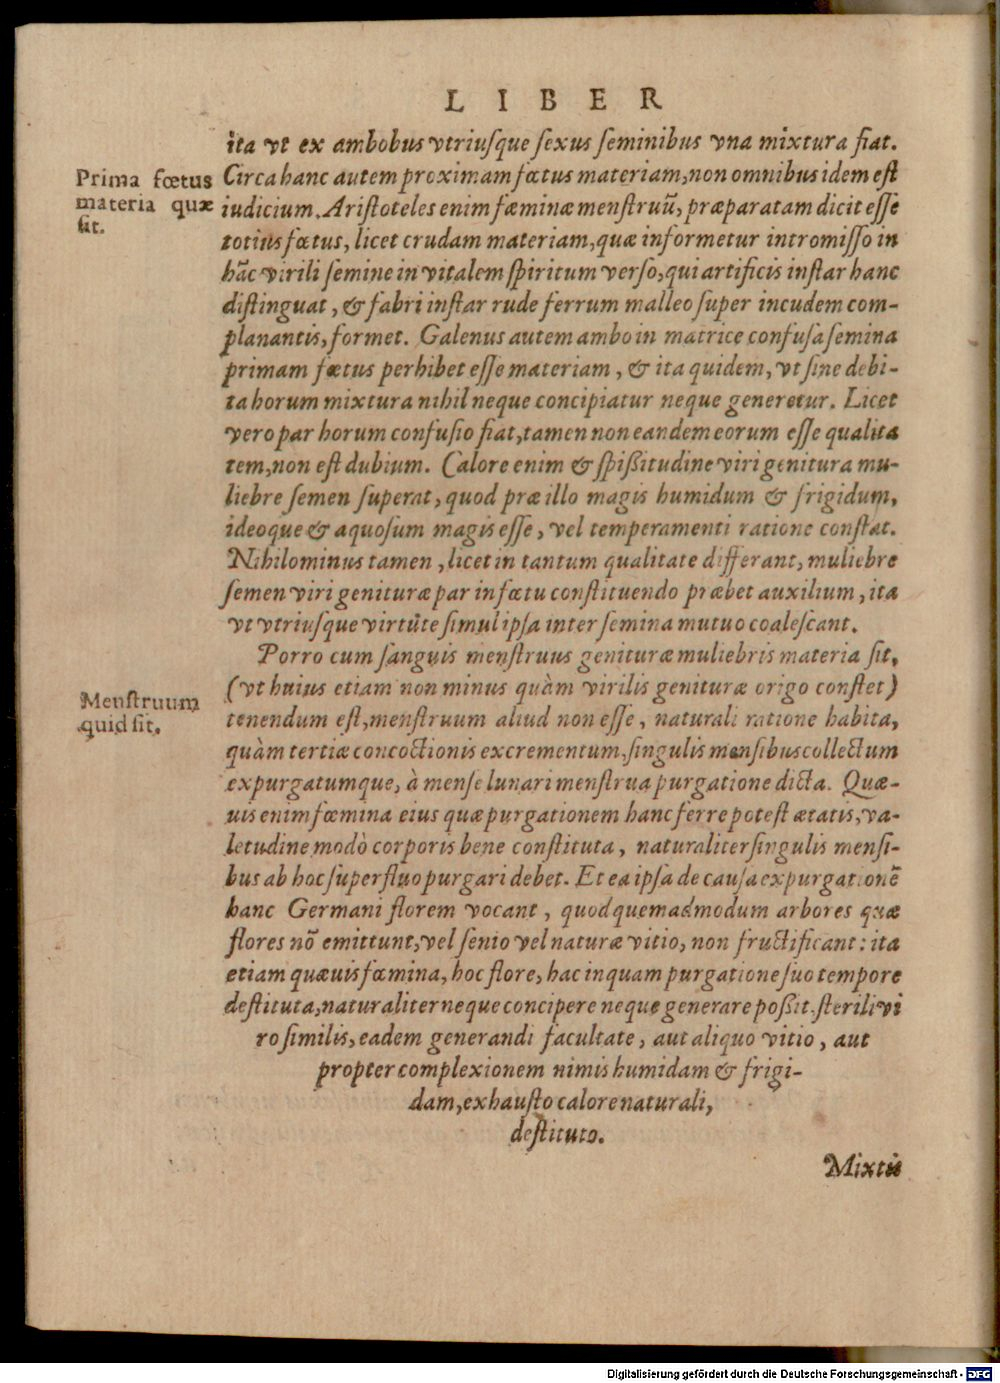 LIBER
ita vt ex ambobus vtriuſque ſexus ſeminibus vna mixtura fiat.
Prima fœtus
materia quæ
ſit.
Circa hanc autem proximam fœtus materiam, non omnibus idem eſt
iudicium. Ariſtoteles enim fæminæ menſtruū, præparatam dicit eſſe
totius fœtus, licet crudam materiam, quæ informetur intromiſſo in
hāc virili ſemine in vitalem ſpiritum verſo, qui artificis inſtar hanc
diſtinguat, & fabri inſtar rude ferrum malleo ſuper incudem com-
planantis, formet. Galenus autem ambo in matrice confuſa ſemina
primam fœtus perhibet eſſe materiam, & ita quidem, vt ſine debi-
ta horum mixtura nihil neque concipiatur neque generetur. Licet
vero par horum confuſio fiat, tamen non eandem eorum eſſe qualita
tem, non eſt dubium. Calore enim & ſpißitudine viri genitura mu-
liebre ſemen ſuperat, quod præ illo magis humidum & frigidum,
ideoque & aquoſum magis eſſe, vel temperamenti ratione conſtat.
Nihilominus tamen, licet in tantum qualitate differant, muliebre
ſemen viri genituræ par in fœtu conſtituendo præbet auxilium, ita
vt vtriuſque virtūte ſimul ipſa inter ſemina mutuo coaleſcant.
Porro cum ſanguis menſtruus genituræ muliebris materia ſit,
Menſtruum
quid ſit.
(vt huius etiam non minus quàm virilis genituræ origo conſtet)
tenendum eſt, menſtruum aliud non eſſe, naturali ratione habita,
quàm tertiæ concoctionis excrementum, ſingulis menſibus collectum
expurgatumque, à menſe lunari menſtrua purgatione dicta. Quæ-
uis enim fœmina eius quæ purgationem hanc ferre poteſt ætatis, va-
letudine modò corporis bene conſtituta, naturaliter ſingulis menſi-
bus ab hoc ſuperfluo purgari debet. Et ea ipſa de cauſa expurgationē
hanc Germani florem vocant, quod quemadmodum arbores quæ
flores nō emittunt, vel ſenio vel naturæ vitio, non fructificant: ita
etiam quæuis fœmina, hoc flore, hac inquam purgatione ſuo tempore
deſtituta, naturaliter neque concipere neque generare poßit. ſterili vi
ro ſimilis, eadem generandi facultate, aut aliquo vitio, aut
propter complexionem nimis humidam & frigi-
dam, exhauſto calore naturali,
deſtituto.
Mixtis
Digitalisierung gefördert durch die Deutsche Forschungsgemeinschaft - DFG